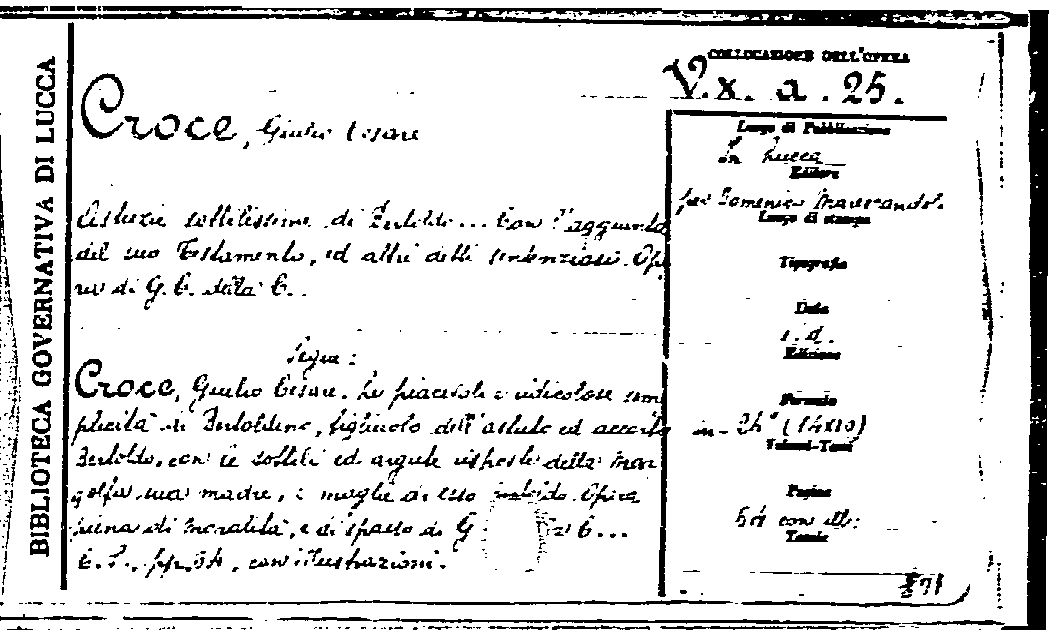 BIBLIOTECA GOVERNATIVA DI LUCCA
COLLOCAZIONE DELL'OPERA
V. x. a. 25.
Croce, Giulio Cesare
Astuzie sottilissime di Bertoldo... Con l'aggiunta
del suo Testamento, ed altri detti sentenziosi. Ope
ra di G. C. della C..
Segue:
Croce, Giulio Cesare. Le piacevoli e ridicolose sem
plicità di Bertoldino, figliuolo dell'astuto ed accorto
Bertoldo, con le sottili ed argute risposte della Mar
golfa sua madre, e moglie di esso Bertoldo. Opera
piena di moralità, e di spasso di G C...
pp. con illustrazioni.
Luogo di Pubblicazione
In Lucca
Editore
per Domenico Marescandoli
Luogo di stampa
Tipografia
Data
s. d.
Edizione
Formato
in-24° (14x10)
Volumi-Tomi
Pagine
con ill:
Tavole